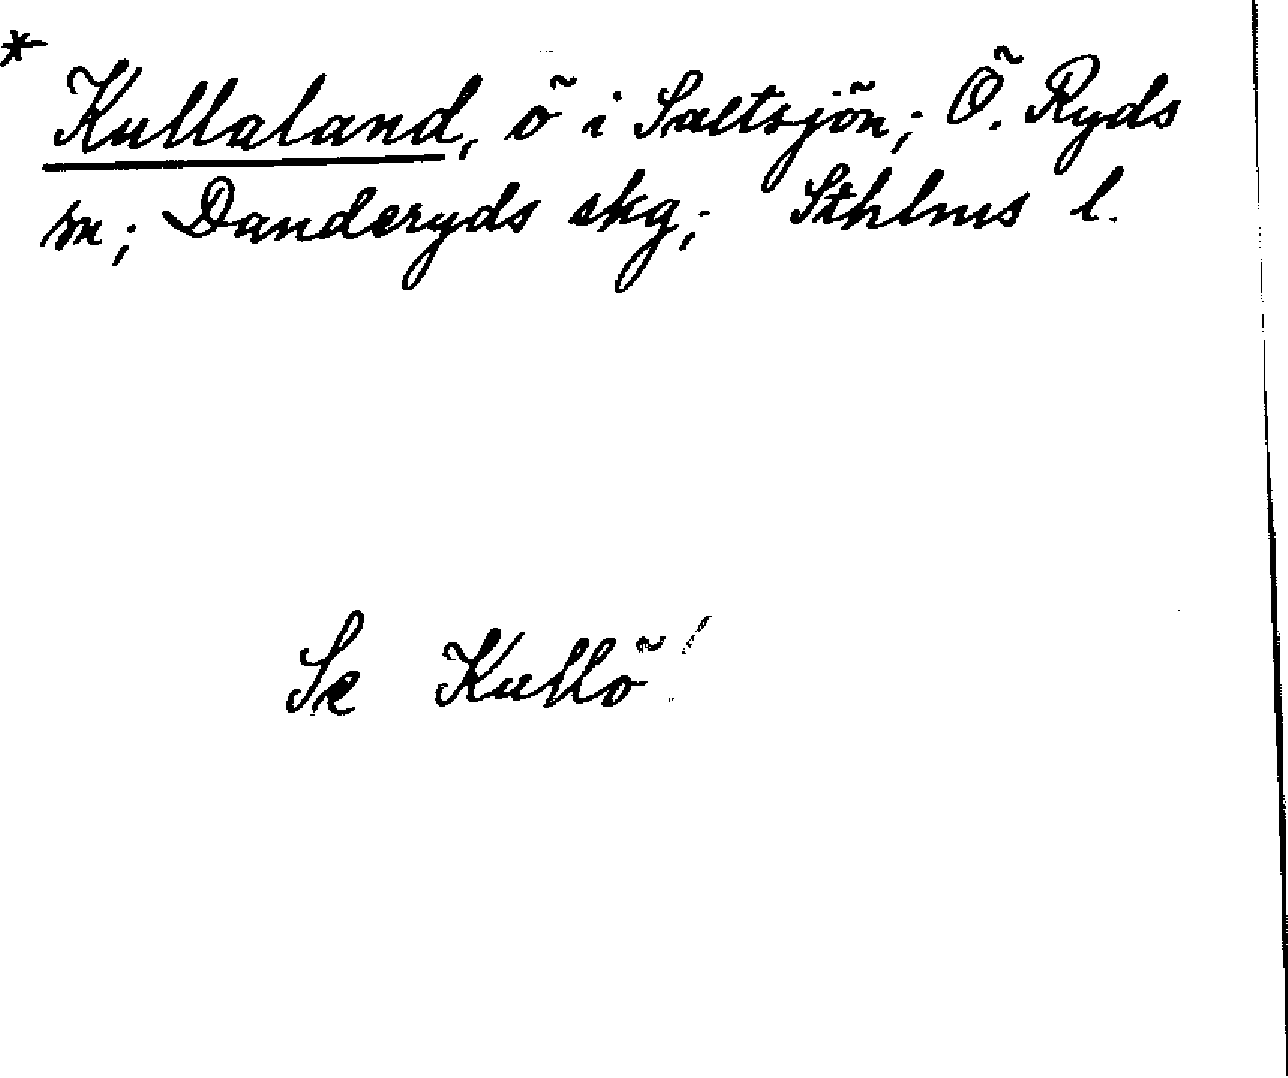 * Kullaland, ö i Saltsjön; Ö. Ryds
sn; Danderyds skg; Sthlms l.
Se Kullö!